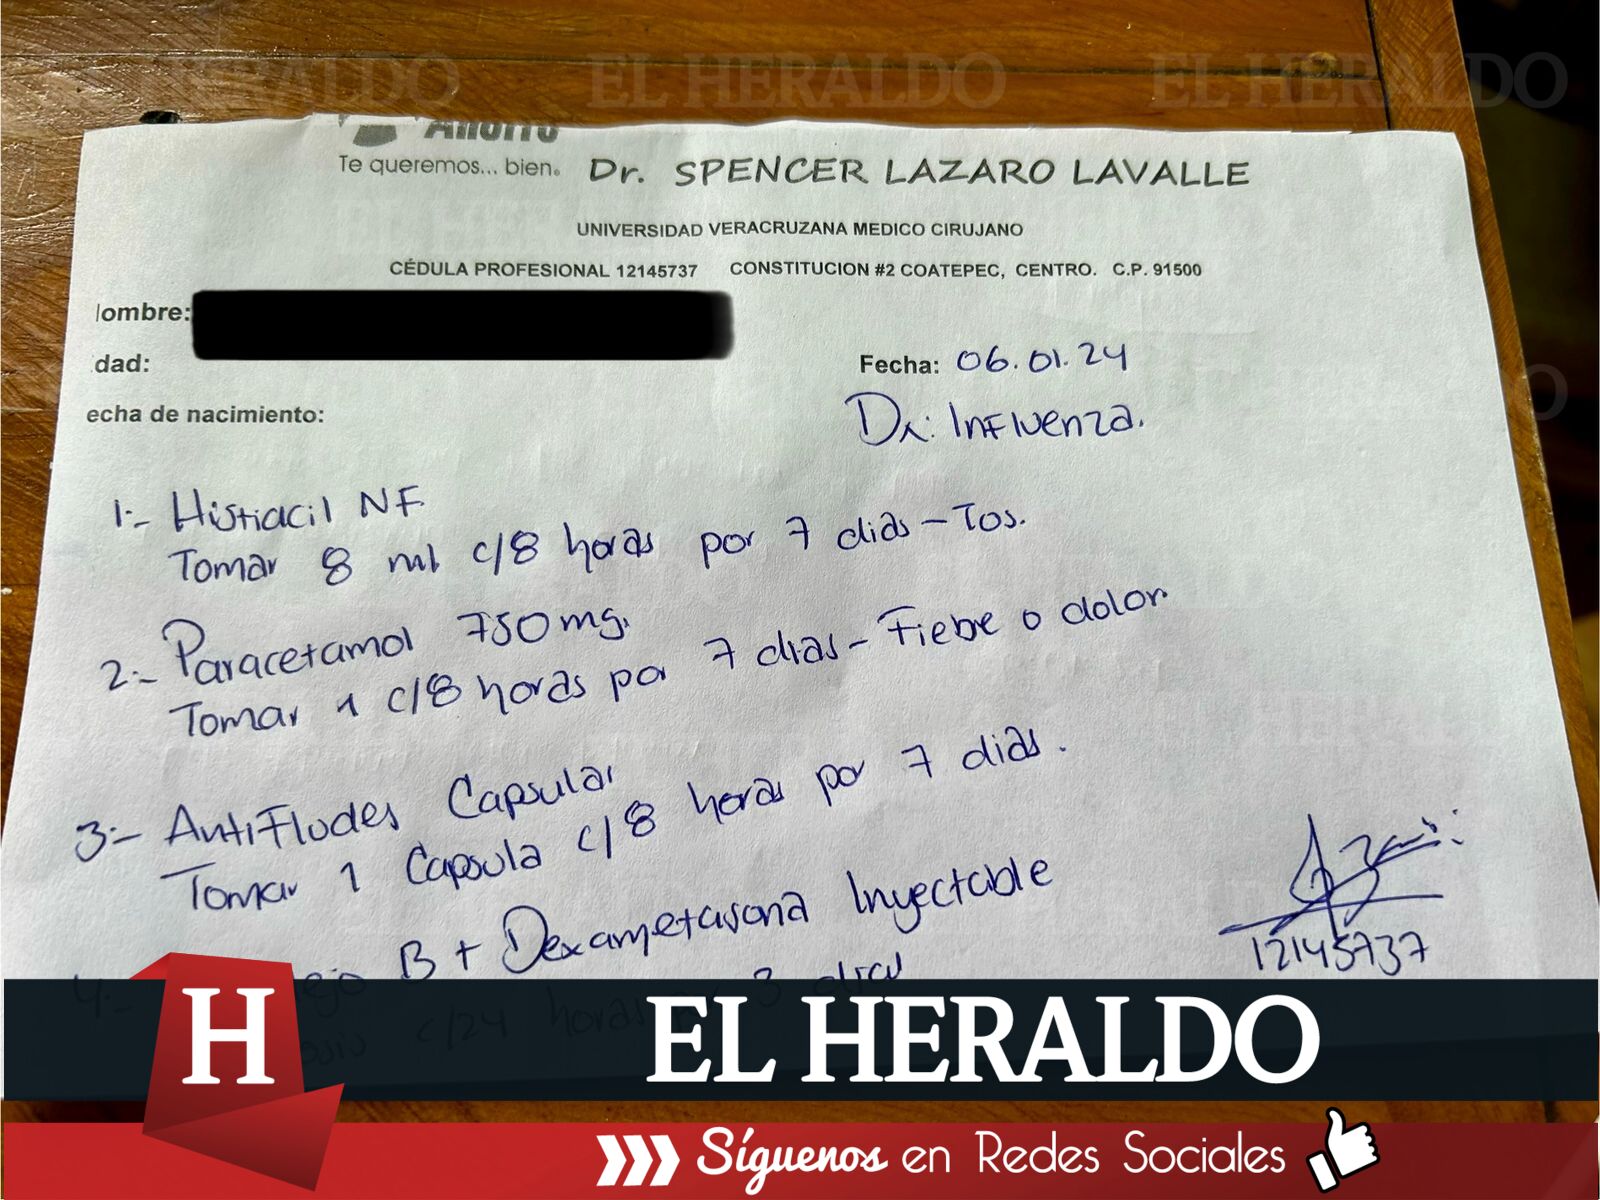 EL HERALDO EL HERALDO EL HERALDO
Ahorro
Te queremos... bien. Dr. SPENCER LAZARO LAVALLE
UNIVERSIDAD VERACRUZANA MEDICO CIRUJANO
CÉDULA PROFESIONAL 12145737 CONSTITUCION #2 COATEPEC, CENTRO. C.P. 91500
ombre:
dad:
Fecha: 06.01.24
echa de nacimiento:
Dx: Influenza.
1.- Histiacil NF.
Tomar 8 ml c/8 horas por 7 dias - Tos.
2.- Paracetamol 750 mg.
Tomar 1 c/8 horas por 7 dias - Fiebre o dolor
3.- AntiFludes Capsular
Tomar 1 Capsula c/8 horas por 7 dias.
4.- B + Dexametasona Inyectable
c/24 horas 3 dias
12145737
H EL HERALDO
Síguenos en Redes Sociales